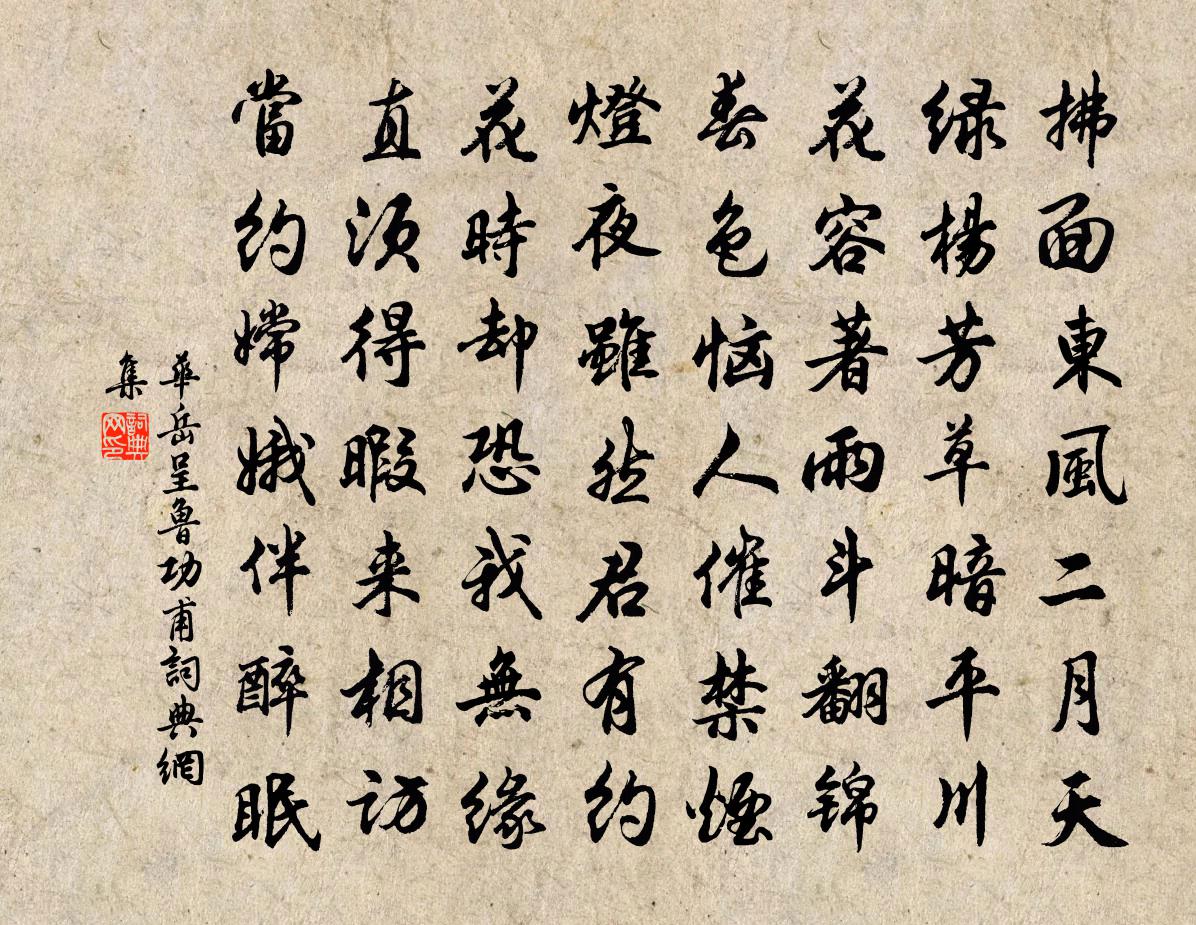 拂面東風二月天
绿楊芳草暗平川
花容著雨斗翻锦
春色恼人催禁煙
燈夜雖然君有約
花時却恐我無緣
直須得暇来相訪
當約嫦娥伴醉眠
華岳呈魯功甫詞典網
集
詞典
网印